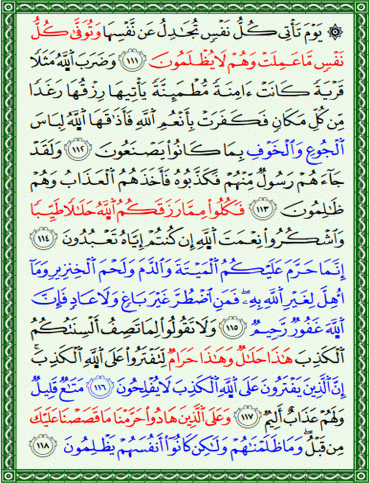 ۞ يَوْمَ تَأْتِي كُلُّ نَفْسٍ تُجَٰدِلُ عَن نَّفْسِهَا وَتُوَفَّىٰ كُلُّ
نَفْسٍ مَّا عَمِلَتْ وَهُمْ لَا يُظْلَمُونَ ١١١ وَضَرَبَ ٱللَّهُ مَثَلًا
قَرْيَةً كَانَتْ ءَامِنَةً مُّطْمَئِنَّةً يَأْتِيهَا رِزْقُهَا رَغَدًا
مِّن كُلِّ مَكَانٍ فَكَفَرَتْ بِأَنْعُمِ ٱللَّهِ فَأَذَٰقَهَا ٱللَّهُ لِبَاسَ
ٱلْجُوعِ وَٱلْخَوْفِ بِمَا كَانُوا۟ يَصْنَعُونَ ١١٢ وَلَقَدْ
جَآءَهُمْ رَسُولٌ مِّنْهُمْ فَكَذَّبُوهُ فَأَخَذَهُمُ ٱلْعَذَابُ وَهُمْ
ظَٰلِمُونَ ١١٣ فَكُلُوا۟ مِمَّا رَزَقَكُمُ ٱللَّهُ حَلَٰلًا طَيِّبًا
وَٱشْكُرُوا۟ نِعْمَتَ ٱللَّهِ إِن كُنتُمْ إِيَّاهُ تَعْبُدُونَ ١١٤
إِنَّمَا حَرَّمَ عَلَيْكُمُ ٱلْمَيْتَةَ وَٱلدَّمَ وَلَحْمَ ٱلْخِنزِيرِ وَمَآ
أُهِلَّ لِغَيْرِ ٱللَّهِ بِهِۦ فَمَنِ ٱضْطُرَّ غَيْرَ بَاغٍ وَلَا عَادٍ فَإِنَّ
ٱللَّهَ غَفُورٌ رَّحِيمٌ ١١٥ وَلَا تَقُولُوا۟ لِمَا تَصِفُ أَلْسِنَتُكُمُ
ٱلْكَذِبَ هَٰذَا حَلَٰلٌ وَهَٰذَا حَرَامٌ لِّتَفْتَرُوا۟ عَلَى ٱللَّهِ ٱلْكَذِبَ ۚ
إِنَّ ٱلَّذِينَ يَفْتَرُونَ عَلَى ٱللَّهِ ٱلْكَذِبَ لَا يُفْلِحُونَ ١١٦ مَتَٰعٌ قَلِيلٌ
وَلَهُمْ عَذَابٌ أَلِيمٌ ١١٧ وَعَلَى ٱلَّذِينَ هَادُوا۟ حَرَّمْنَا مَا قَصَصْنَا عَلَيْكَ
مِن قَبْلُ ۖ وَمَا ظَلَمْنَٰهُمْ وَلَٰكِن كَانُوٓا۟ أَنفُسَهُمْ يَظْلِمُونَ ١١٨